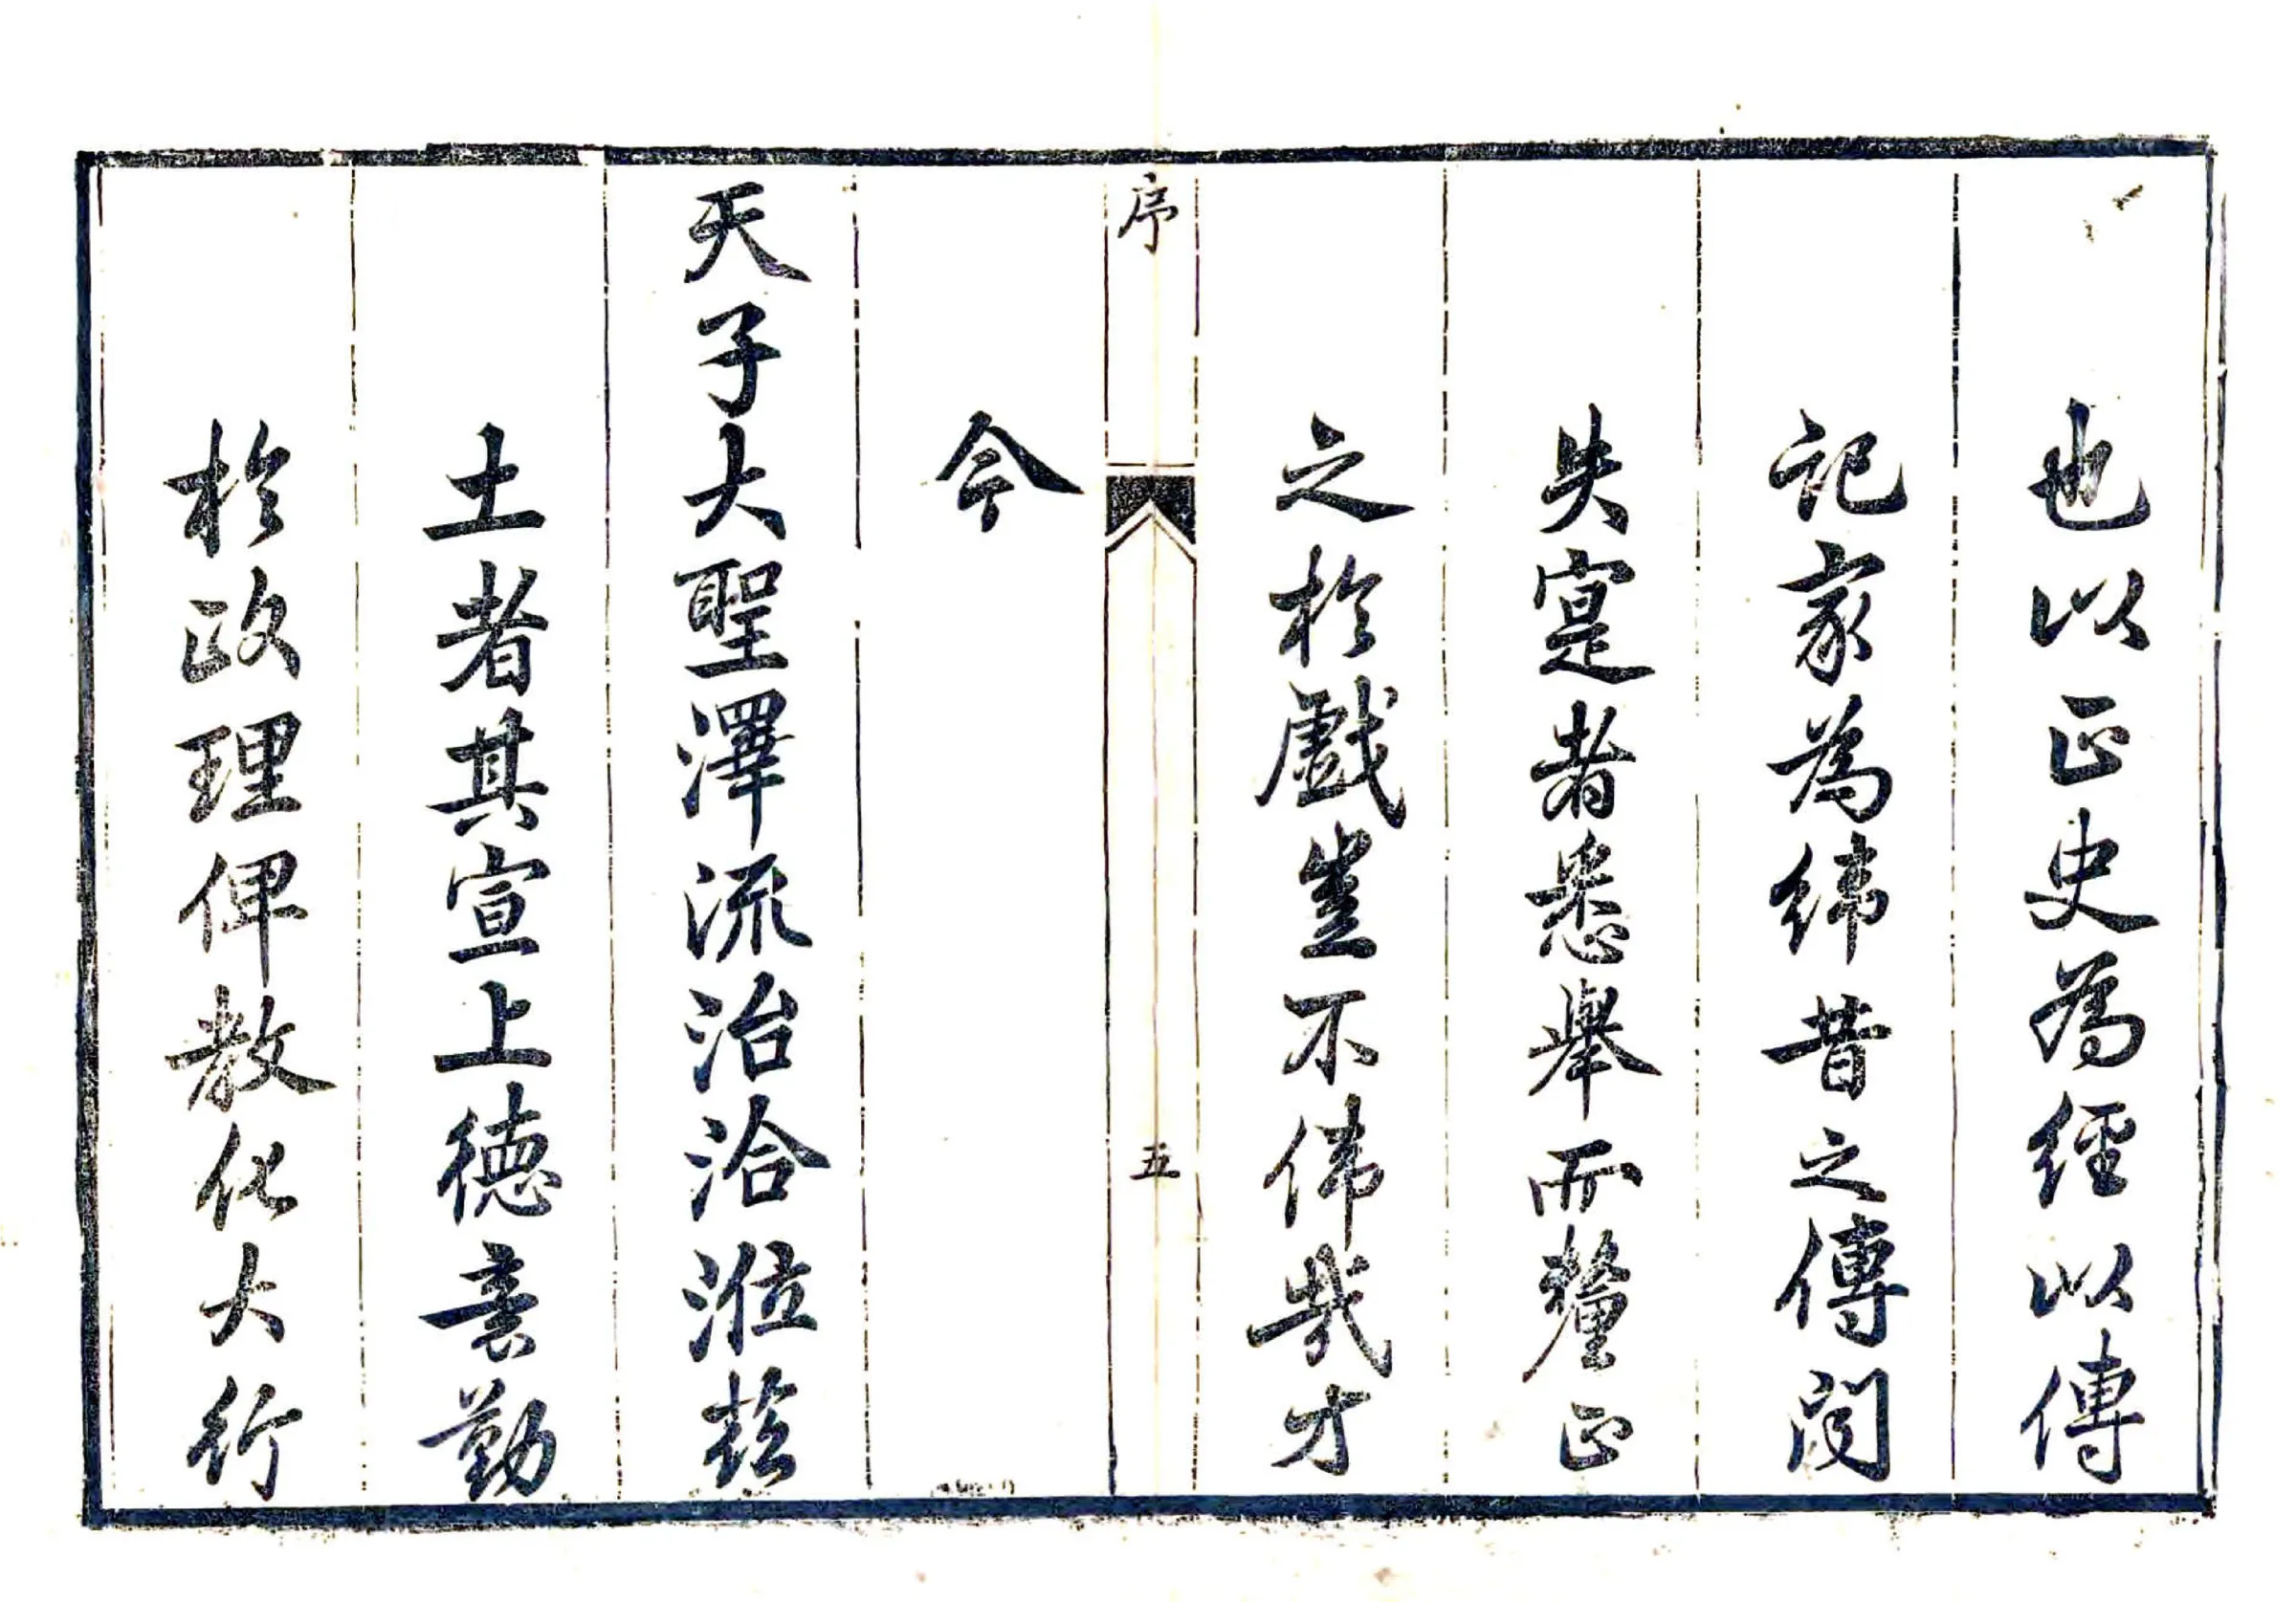 也以正史為經以傳
記家為緯昔之傳聞
失寔者悉舉而釐正
之於戲豈不偉哉方
序
五
今
天子大聖澤流治洽涖茲
土者其宣上德意勤
於政理俾教化大行